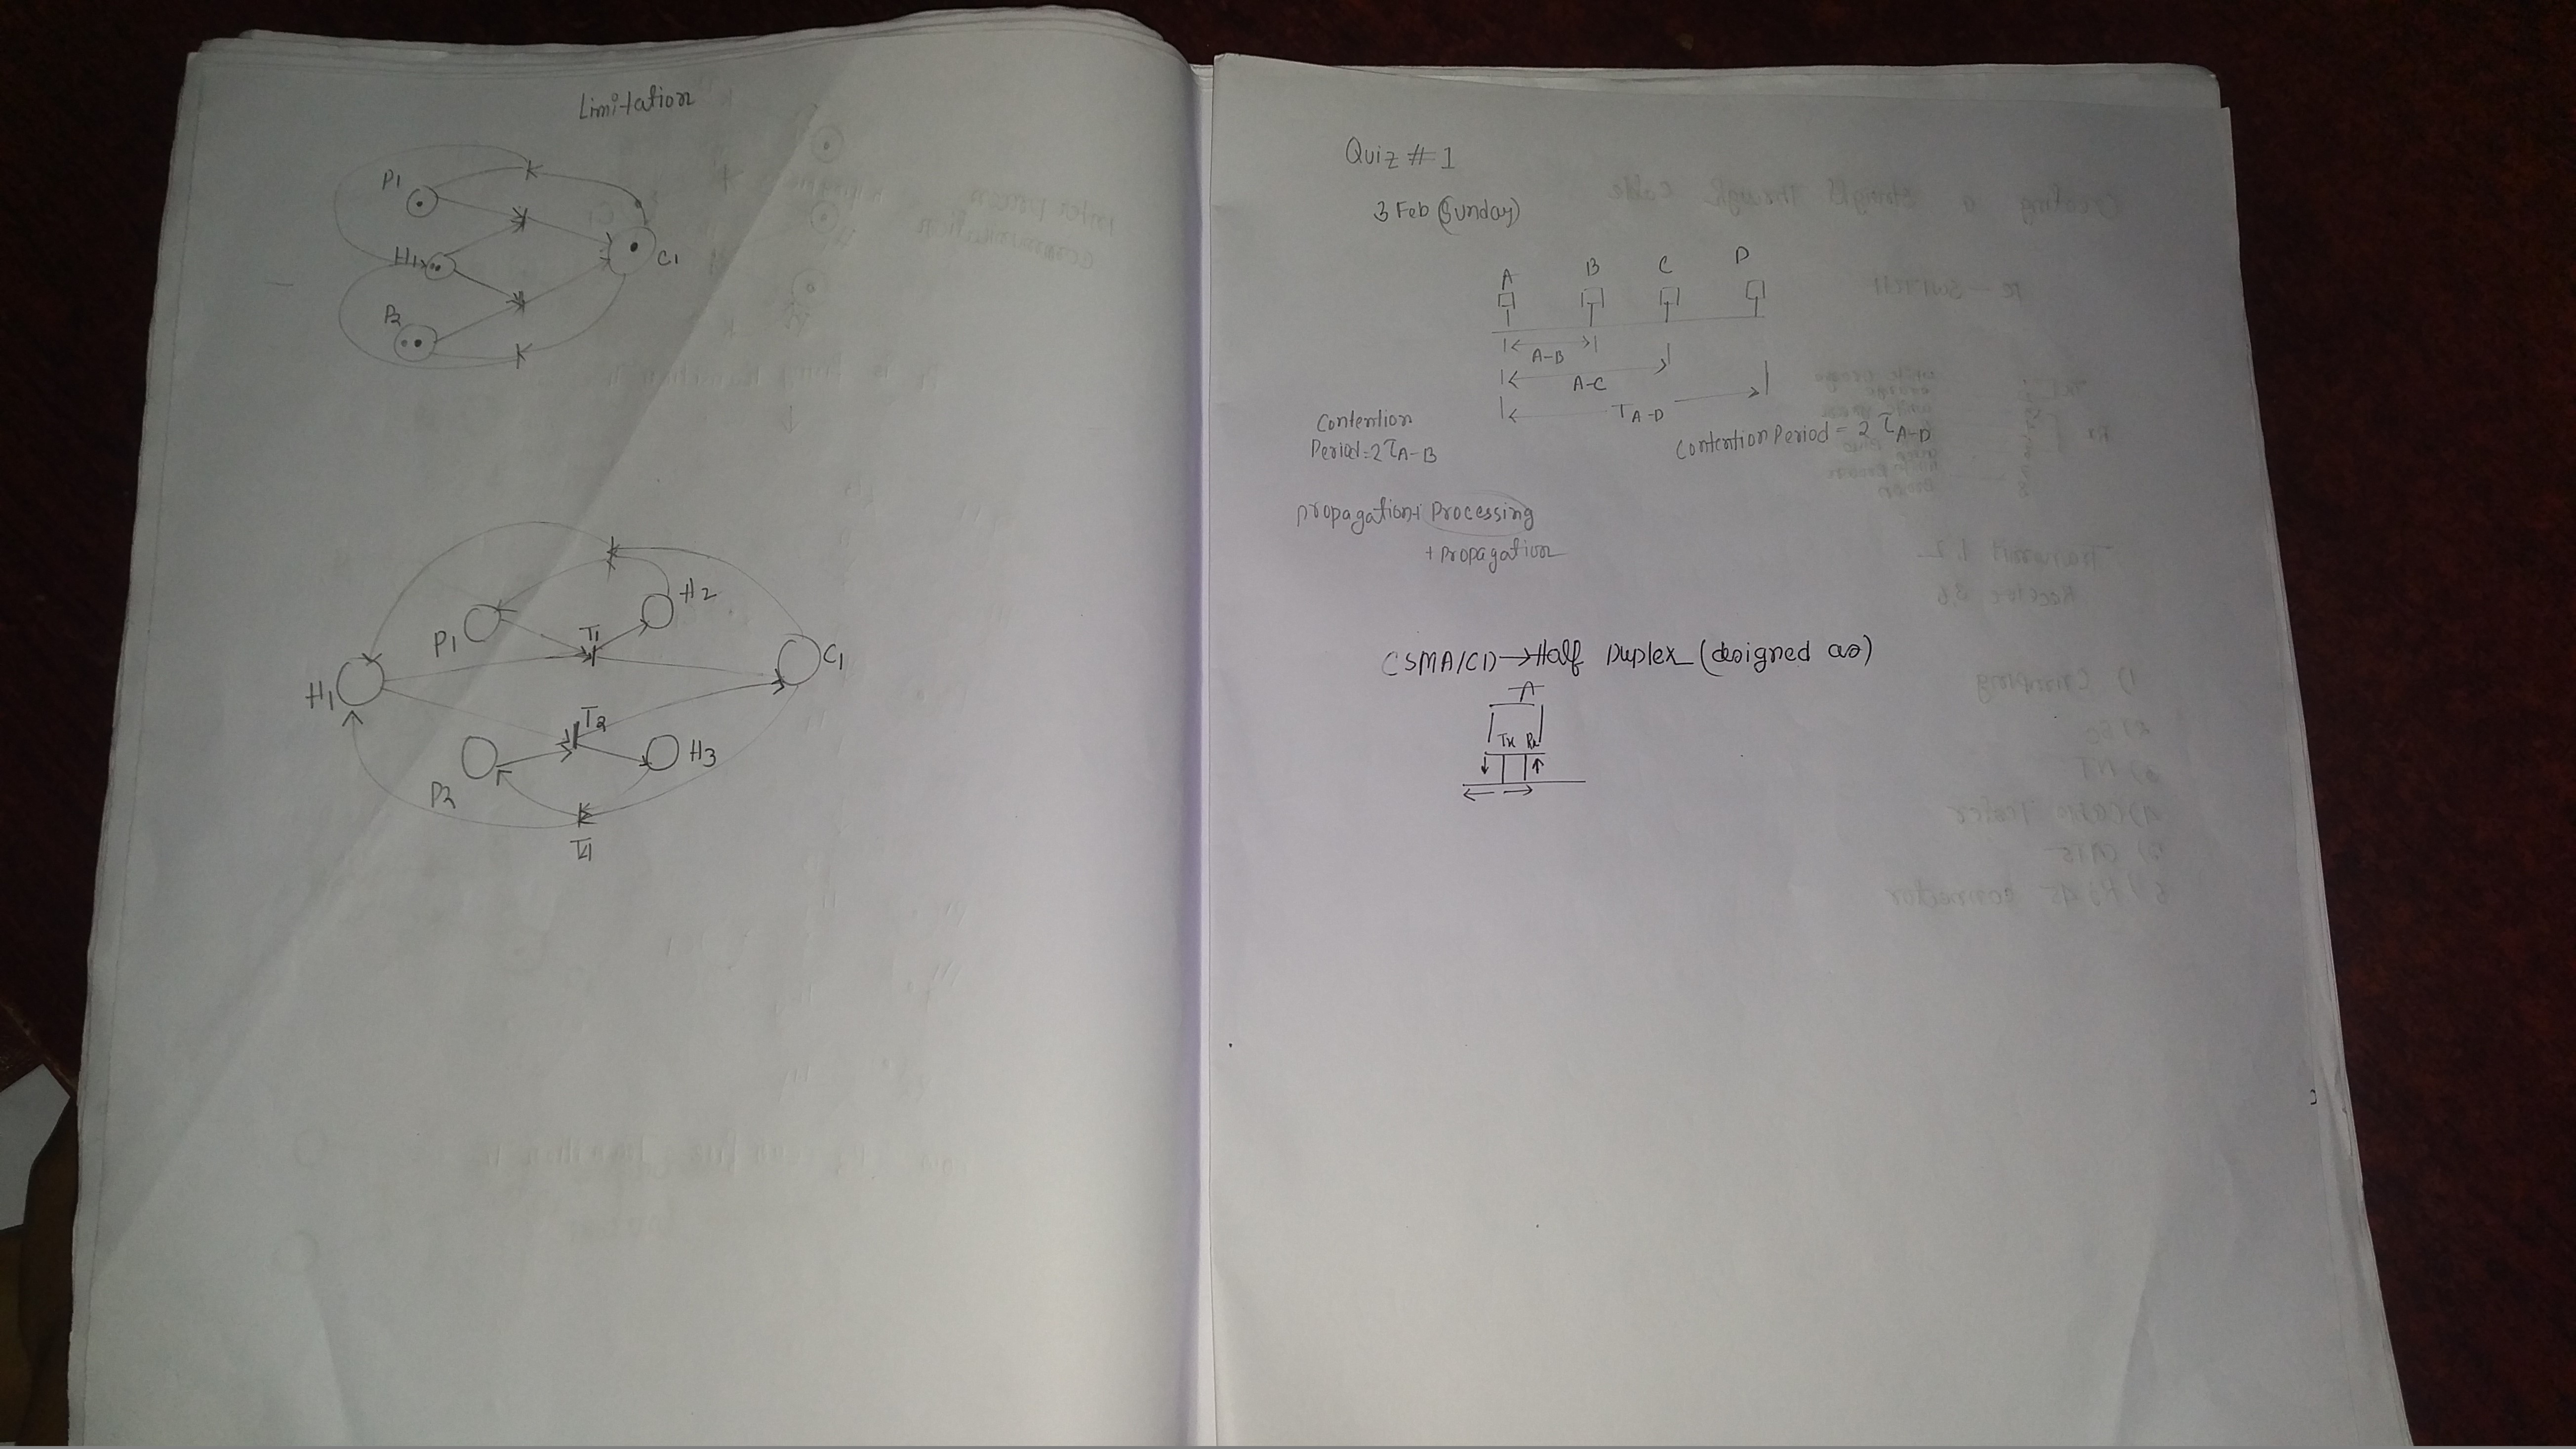 Limitation
P1
H1
C1
P2
H2
P1
T1
C1
H1
T2
H3
P2
T4
Quiz # 1
3 Feb (Sunday)
A B C D
A-B
A-C
T A-D
Contention
Period = 2 τA-B
Contention Period = 2 τA-D
propagation + Processing
+ Propagation
CSMA/CD → Half Duplex (designed as)
A
Tx Rx